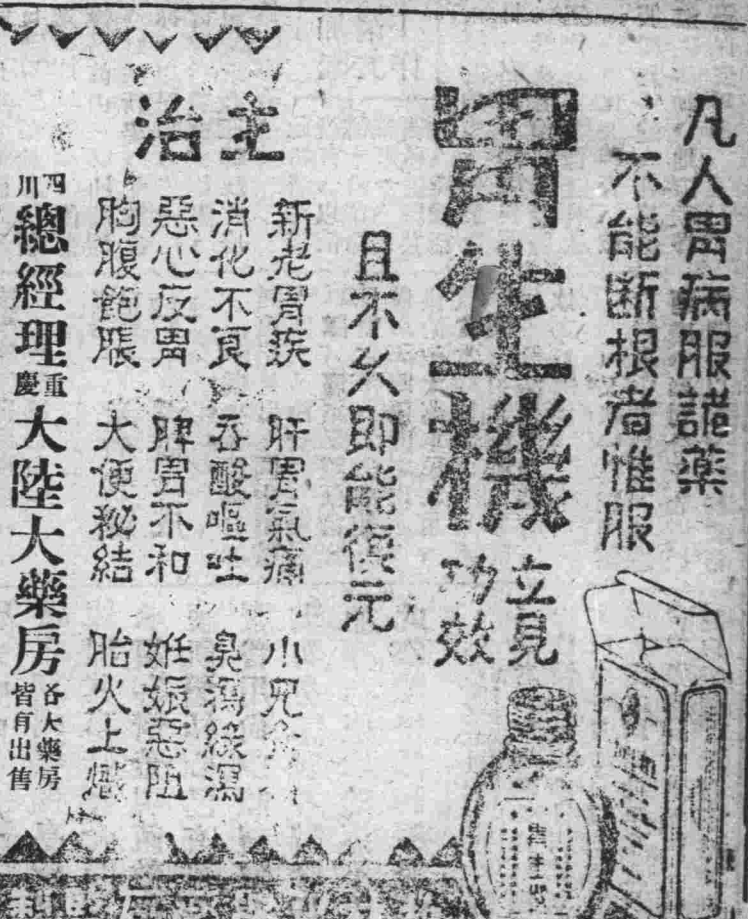 凡人胃病服諸藥
不能斷根者惟服
胃生機
立見
功效
且不久即能復元
主治
新老胃疾 肝胃氣痛 小兒
消化不良 吞酸嘔吐 臭瀉綠瀉
惡心反胃 脾胃不和 妊娠惡阻
胸腹飽脹 大便秘結 胎火上
四川總經理重慶大陸大藥房各大藥房皆有出售